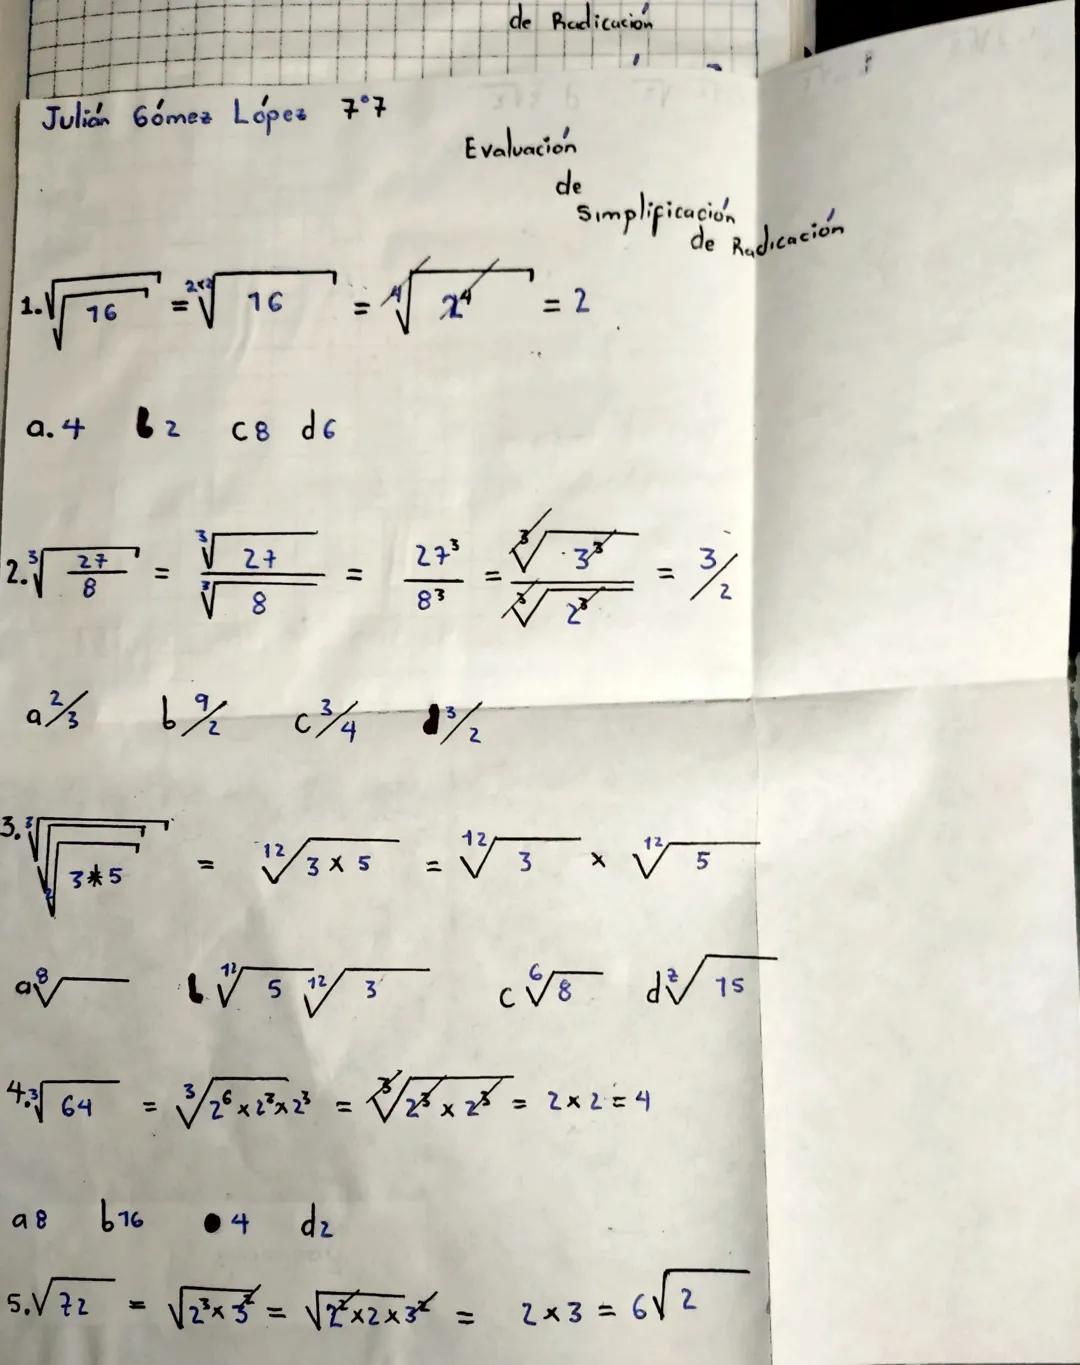 de Radicación
Julián Gómez López 7°7
Evaluación
de
simplificación
de Radicación
1. √√16 = ²ˣ²√16 = ⁴√2⁴ = 2
a. 4 b 2 c 8 d 6
2. ³√27/8 = ³√27/³√8 = 27³/8³ = ³√3³/³√2³ = 3/2
a 2/3 b 9/2 c 3/4 d 3/2
3. ³√√²√3*5 = ¹²√3 x 5 = ¹²√3 x ¹²√5
a ⁸√ b ¹²√5 ¹²√3 c ⁶√8 d ²√15
4. ³√64 = ³√2⁶ x 2³ x 2³ = ³√2³ x 2³ = 2 x 2 = 4
a 8 b 16 4 d 2
5. √72 = √2³ x 3² = √2² x 2 x 3² = 2 x 3 = 6√2